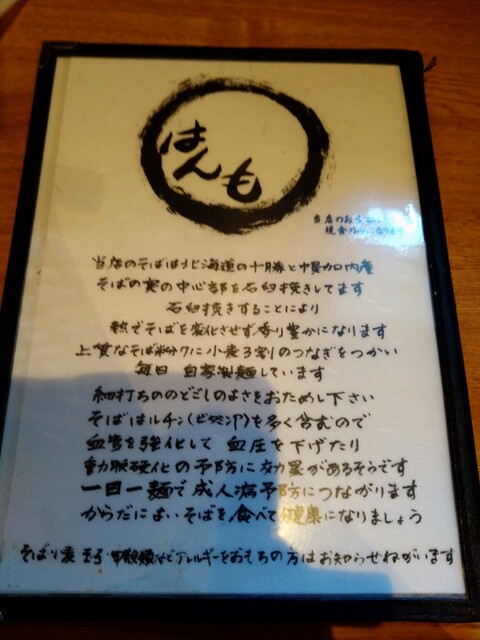 はんも
当店のお
現金
当店のそばは北海道の十勝と幌加内産
そばの実の中心部を石臼挽きしてます
石臼挽きすることにより
熱でそばを変化させず香り豊かになります
上質なそば粉7に小麦3割のつなぎをつかい
毎日 自家製麺しています
細打ちののどごしのよさをおためし下さい
そばはルチン(ビタミンP)を多く含むので
血管を強化して 血圧を下げたり
動脈硬化の予防に効果があるそうです
一日一麺で成人病予防につながります
からだによいそばを食べて健康になりましょう
そば 小麦 玉子 甲殻類などアレルギーをおもちの方はお知らせねがいます